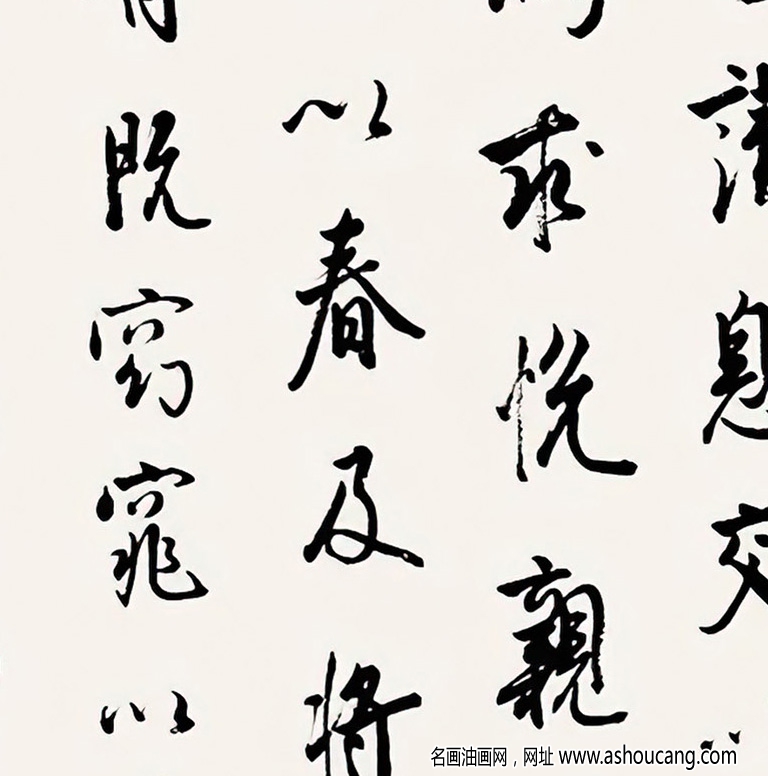 請息交
求悦親
以春及将
既窈窕以
名画油画网，网址 www.ashoucang.com